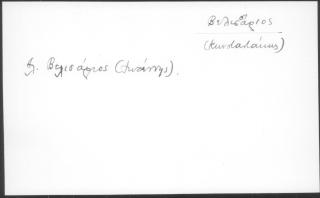 Βελισάριος
(Κωνσταντίνος)
βλ. Βελισάριος (Ιωάννης).